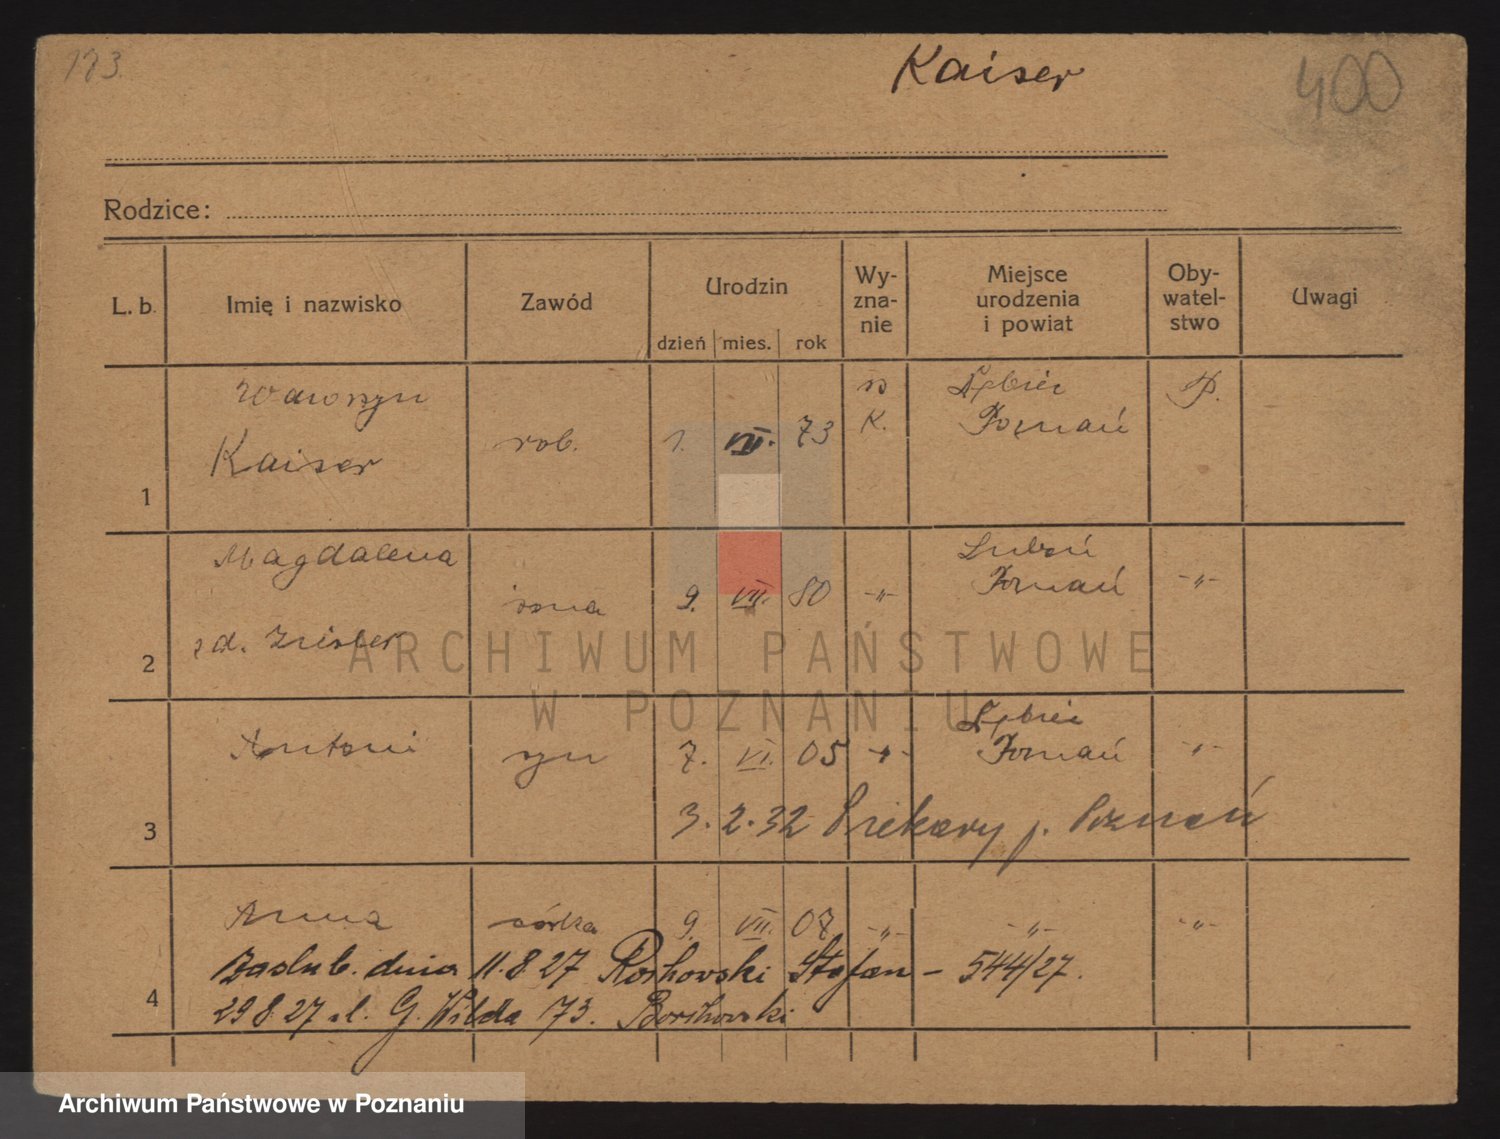 173
Kaiser
400
Rodzice:
L. b. Imię i nazwisko Zawód Urodzin dzień mies. rok Wy-zna-nie Miejsce urodzenia i powiat Oby-watel-stwo Uwagi
Wawrzyn
Kaiser rob. 1. VII. 73 rz K. Dębiec Poznań P.
1
Magdalena żona 9. VII. 80 -"- Luboń Poznań -"-
2
ARCHIWUM PAŃSTWOWE
W POZNANIU
Antoni syn 7. VI. 05 -"- Dębiec Poznań -"-
3 3.2.32 Piekary p. Poznań
Anna córka 9. VII. 07 -"- -"- -"-
Zaslub. dnia 11.8.27 Stefan - 544/27.
4 29.8.27 G. Wilda 73.
Archiwum Państwowe w Poznaniu